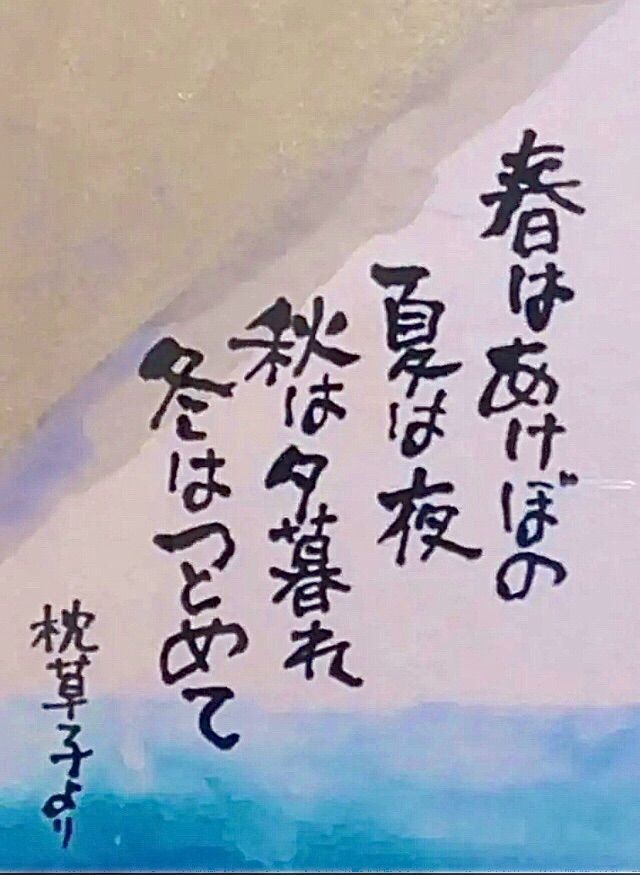 春はあけぼの
夏は夜
秋は夕暮れ
冬はつとめて
枕草子より